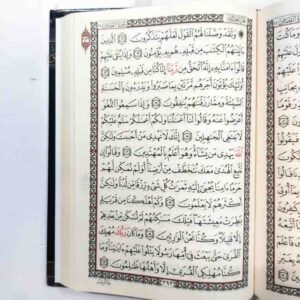 ۞ وَلَقَدْ وَصَّلْنَا لَهُمُ ٱلْقَوْلَ لَعَلَّهُمْ يَتَذَكَّرُونَ ٥١ ٱلَّذِينَ
ءَاتَيْنَٰهُمُ ٱلْكِتَٰبَ مِن قَبْلِهِۦ هُم بِهِۦ يُؤْمِنُونَ ٥٢ وَإِذَا يُتْلَىٰ عَلَيْهِمْ
قَالُوٓا۟ ءَامَنَّا بِهِۦٓ إِنَّهُ ٱلْحَقُّ مِن رَّبِّنَآ إِنَّا كُنَّا مِن قَبْلِهِۦ مُسْلِمِينَ ٥٣
أُو۟لَٰٓئِكَ يُؤْتَوْنَ أَجْرَهُم مَّرَّتَيْنِ بِمَا صَبَرُوا۟ وَيَدْرَءُونَ بِٱلْحَسَنَةِ
ٱلسَّيِّئَةَ وَمِمَّا رَزَقْنَٰهُمْ يُنفِقُونَ ٥٤ وَإِذَا سَمِعُوا۟ ٱللَّغْوَ
أَعْرَضُوا۟ عَنْهُ وَقَالُوا۟ لَنَآ أَعْمَٰلُنَا وَلَكُمْ أَعْمَٰلُكُمْ سَلَٰمٌ عَلَيْكُمْ
لَا نَبْتَغِى ٱلْجَٰهِلِينَ ٥٥ إِنَّكَ لَا تَهْدِى مَنْ أَحْبَبْتَ وَلَٰكِنَّ
ٱللَّهَ يَهْدِى مَن يَشَآءُ وَهُوَ أَعْلَمُ بِٱلْمُهْتَدِينَ ٥٦ وَقَالُوٓا۟ إِن
نَّتَّبِعِ ٱلْهُدَىٰ مَعَكَ نُتَخَطَّفْ مِنْ أَرْضِنَآ أَوَلَمْ نُمَكِّن لَّهُمْ
حَرَمًا ءَامِنًا يُجْبَىٰٓ إِلَيْهِ ثَمَرَٰتُ كُلِّ شَىْءٍ رِّزْقًا مِّن لَّدُنَّا وَلَٰكِنَّ
أَكْثَرَهُمْ لَا يَعْلَمُونَ ٥٧ وَكَمْ أَهْلَكْنَا مِن قَرْيَةٍ
بَطِرَتْ مَعِيشَتَهَا فَتِلْكَ مَسَٰكِنُهُمْ لَمْ تُسْكَن مِّنۢ بَعْدِهِمْ
إِلَّا قَلِيلًا وَكُنَّا نَحْنُ ٱلْوَٰرِثِينَ ٥٨ وَمَا كَانَ رَبُّكَ مُهْلِكَ
ٱلْقُرَىٰ حَتَّىٰ يَبْعَثَ فِىٓ أُمِّهَا رَسُولًا يَتْلُوا۟ عَلَيْهِمْ ءَايَٰتِنَا
وَمَا كُنَّا مُهْلِكِى ٱلْقُرَىٰٓ إِلَّا وَأَهْلُهَا ظَٰلِمُونَ ٥٩